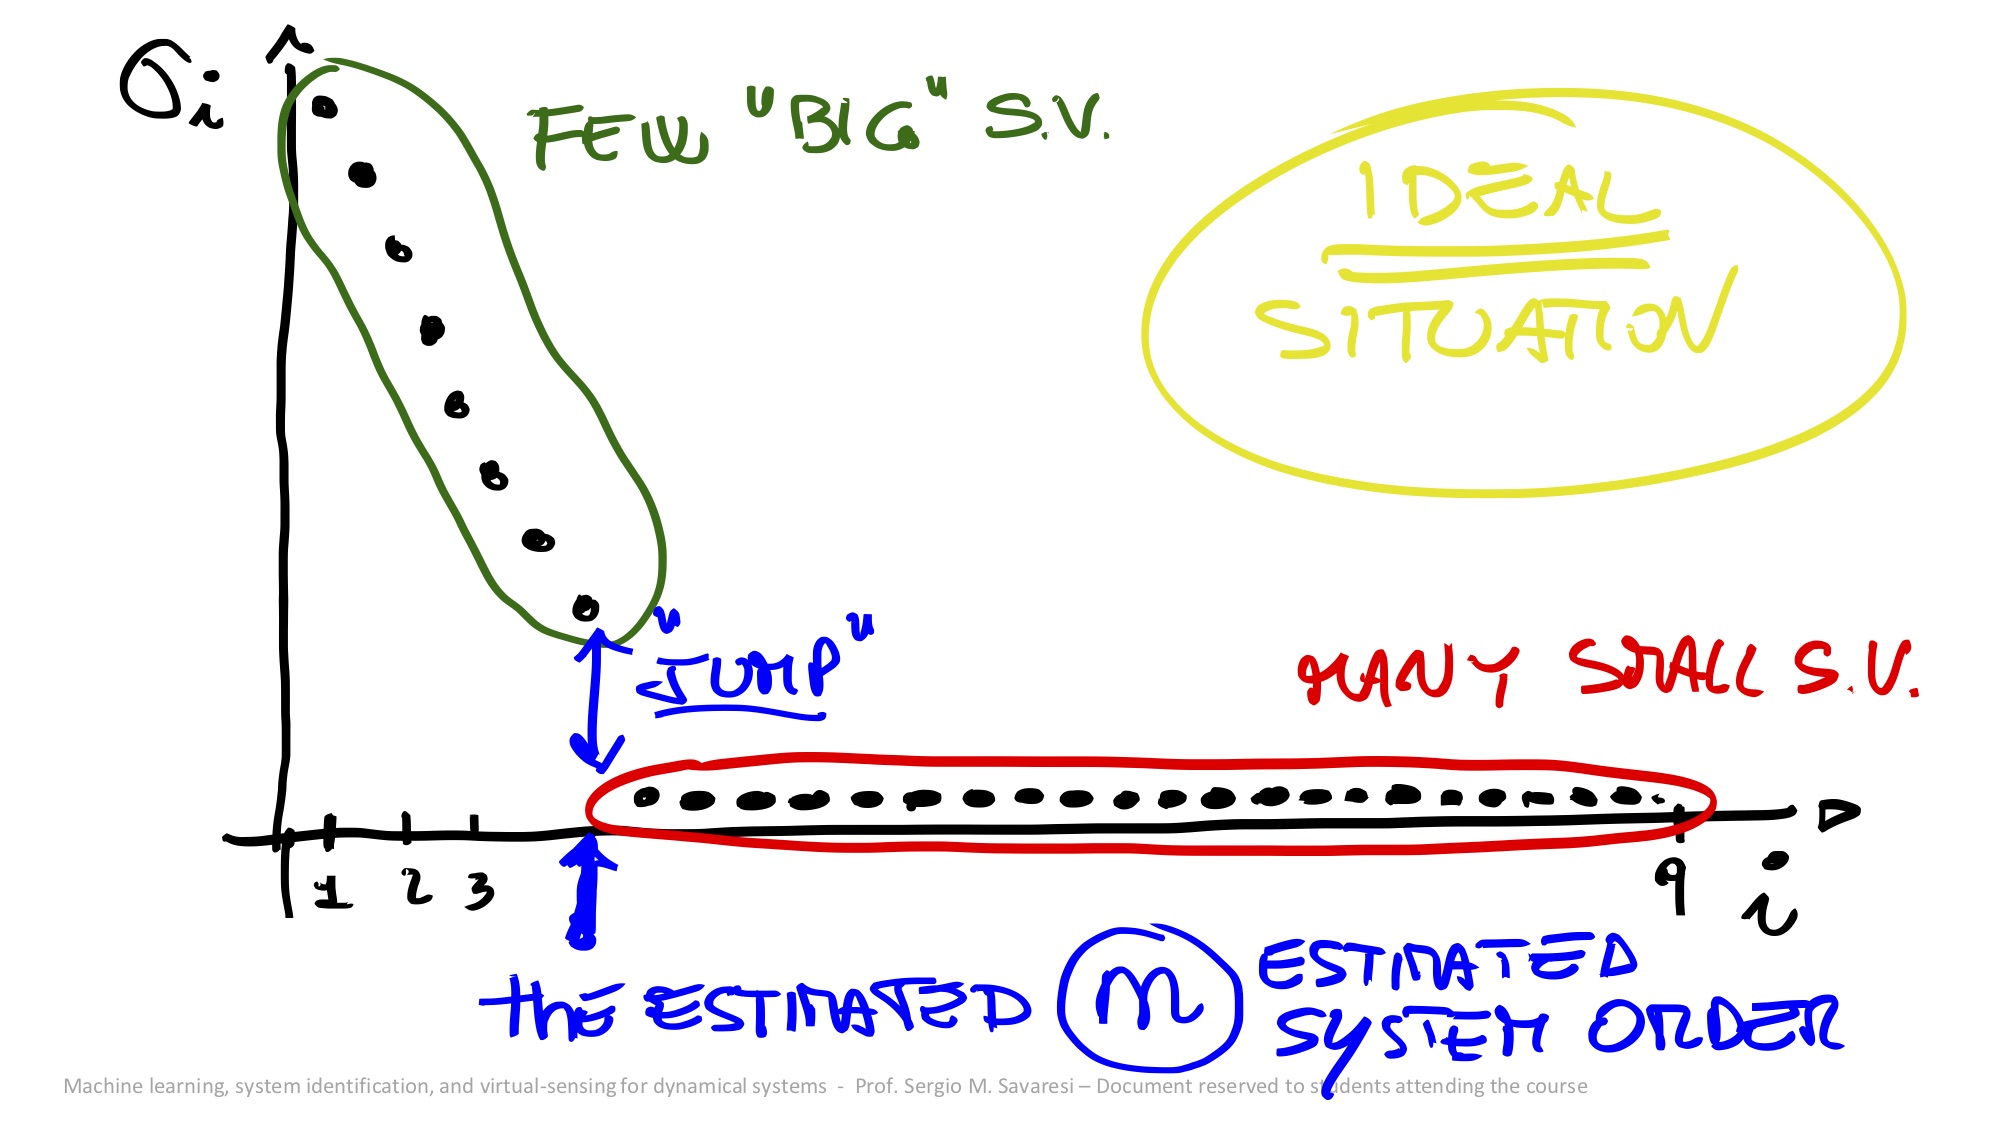 σi
FEW "BIG" S.V.
IDEAL
SITUATION
"JUMP"
MANY SMALL S.V.
1 2 3 q i
the ESTIMATED n ESTIMATED
SYSTEM ORDER
Machine learning, system identification, and virtual-sensing for dynamical systems - Prof. Sergio M. Savaresi – Document reserved to students attending the course